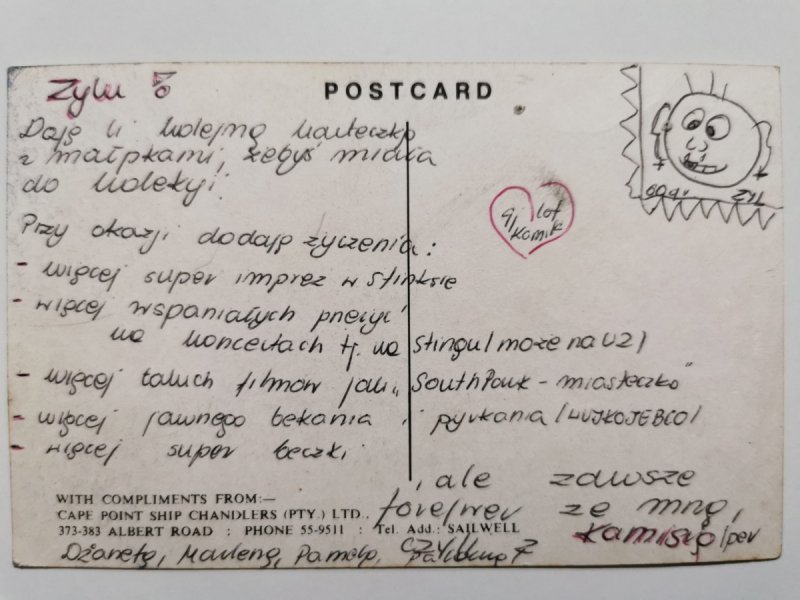 Zylu
POSTCARD
Daję ci kolejną karteczkę
z małpkami, żebyś miała
do kolekcji
Przy okazji dodaję życzenia:
- więcej super imprez w Stinksie
- więcej wspaniałych przeżyć
na koncertach tj. na Stingu/może na U2/
- więcej takich filmów jak „South Park - miasteczko"
- więcej jawnego bekania i pyrkania
- więcej super beczki
, ale zawsze
forewer ze mną,
Kamisią/per
Dżanetą, Marleną, Pamelą,
lot
Kamik
ZYL
WITH COMPLIMENTS FROM:—
CAPE POINT SHIP CHANDLERS (PTY.) LTD.,
373-383 ALBERT ROAD : PHONE 55-9511 : Tel. Add.: SAILWELL